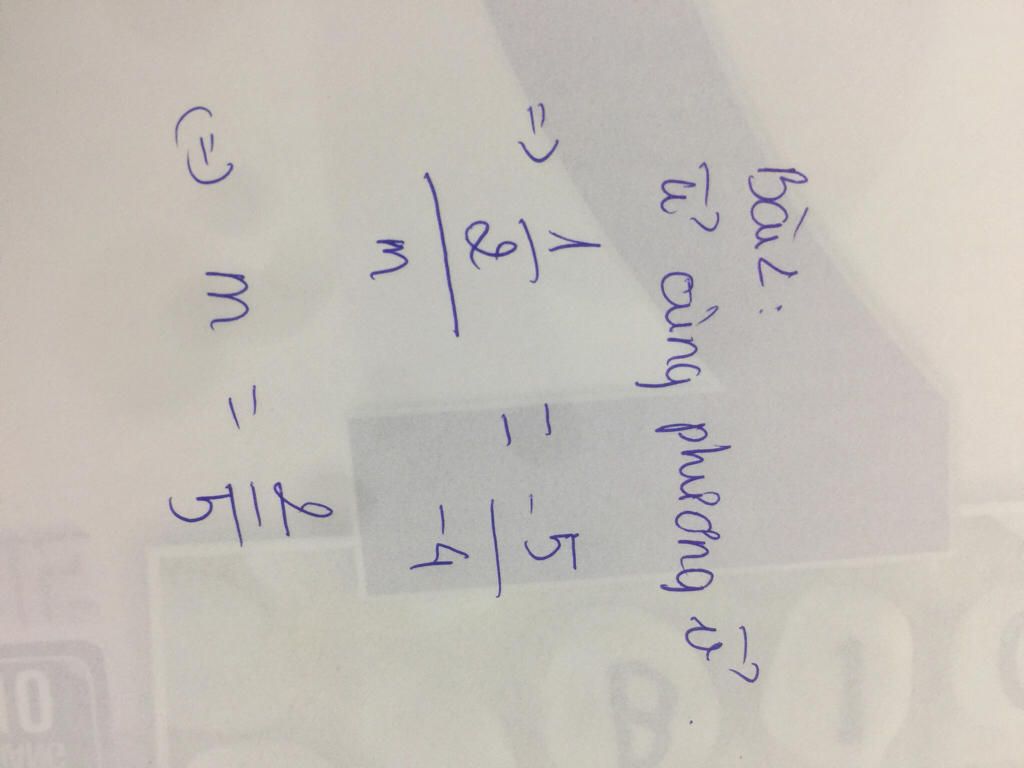 Bài 2:
u⃗ cùng phương v⃗
=> (1/2)/m = -5/-4
(=) m = 2/5
10